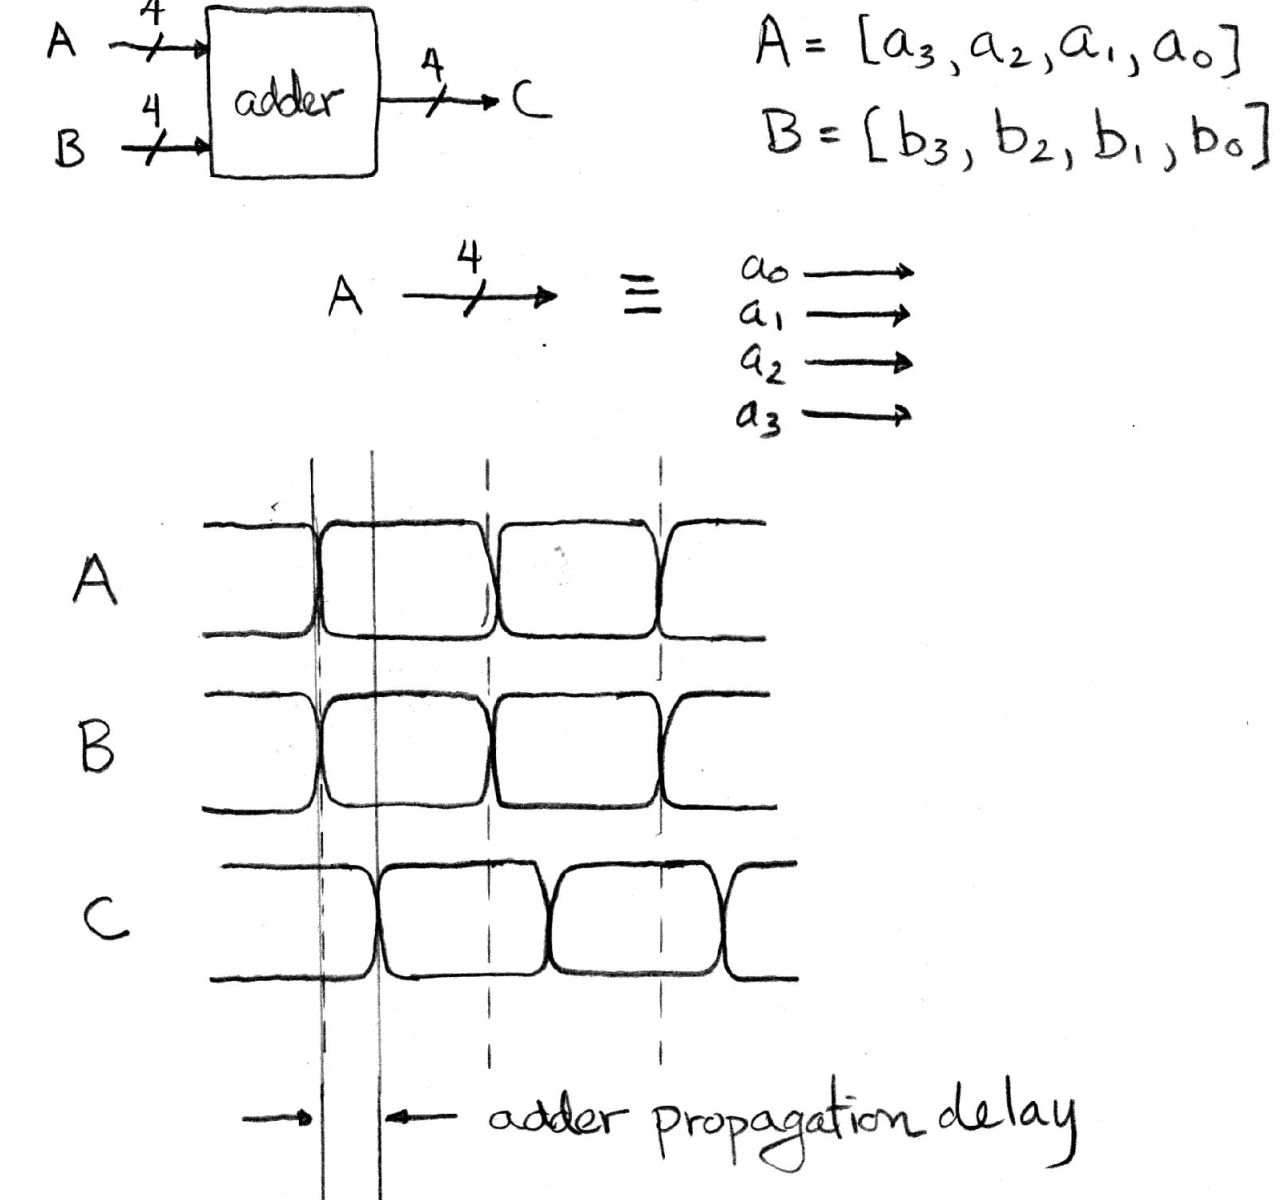 A 4 adder 4 C A = [a3, a2, a1, a0]
B 4 B = [b3, b2, b1, b0]
A 4 ≡ a0
a1
a2
a3
A
B
C
adder propagation delay